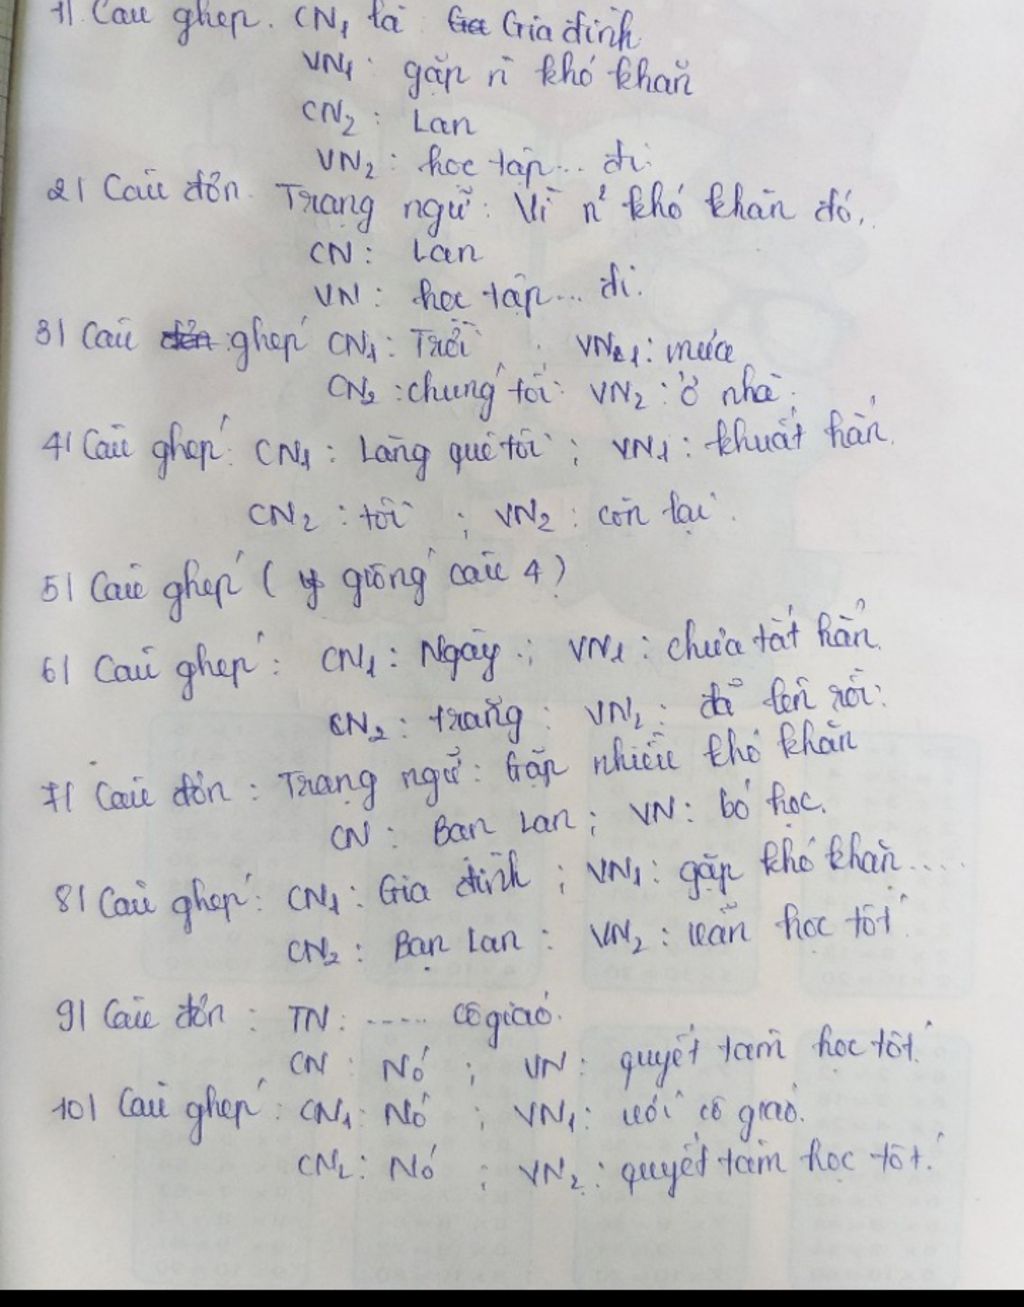 1| Câu ghép. CN1 là Gia đình
VN1: gặp n~ khó khăn
CN2: Lan
VN2: học tập... đi.
2| Câu đơn. Trạng ngữ: Vì n~ khó khăn đó,.
CN: Lan
VN: học tập... đi.
3| Câu ghép CN1: Trời . VN1: mưa
CN2: chúng tôi. VN2: ở nhà.
4| Câu ghép: CN1: Làng quê tôi ; VN1: khuất hẳn.
CN2: tôi ; VN2: còn lại.
5| Câu ghép (giống câu 4)
6| Câu ghép: CN1: Ngày ; VN1: chưa tắt hẳn.
CN2: trăng : VN2: đã lên rồi.
7| Câu đơn: Trạng ngữ: Gặp nhiều khó khăn
CN: Bạn Lan; VN: bỏ học.
8| Câu ghép: CN1: Gia đình ; VN1: gặp khó khăn....
CN2: Bạn Lan : VN2: vẫn học tốt
9| Câu đơn : TN: ..... cô giáo.
CN : Nó ; VN: quyết tâm học tốt.
10| Câu ghép: CN1: Nó ; VN1: với cô giáo.
CN2: Nó ; VN2: quyết tâm học tốt.